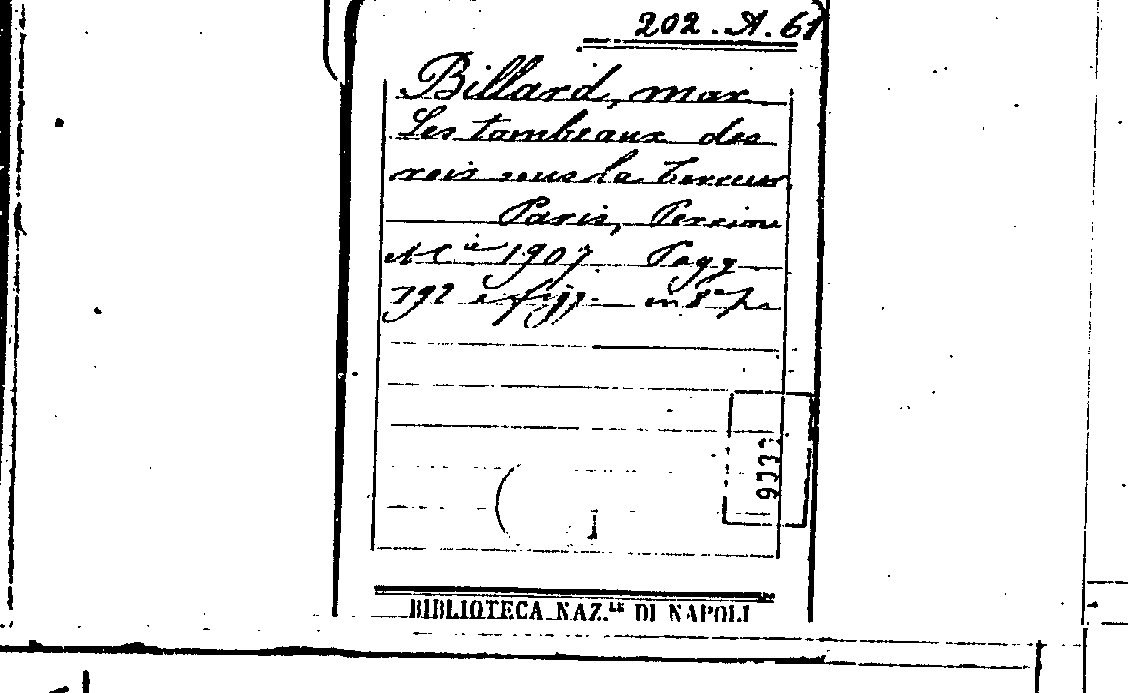 202. A. 61
Billard, max
Les tombeaux des
rois sous la Terreur
Paris, Perrin
et C.ie 1907. Pagg
192 e figg. in 8°
9033
BIBLIOTECA NAZ.LE DI NAPOLI